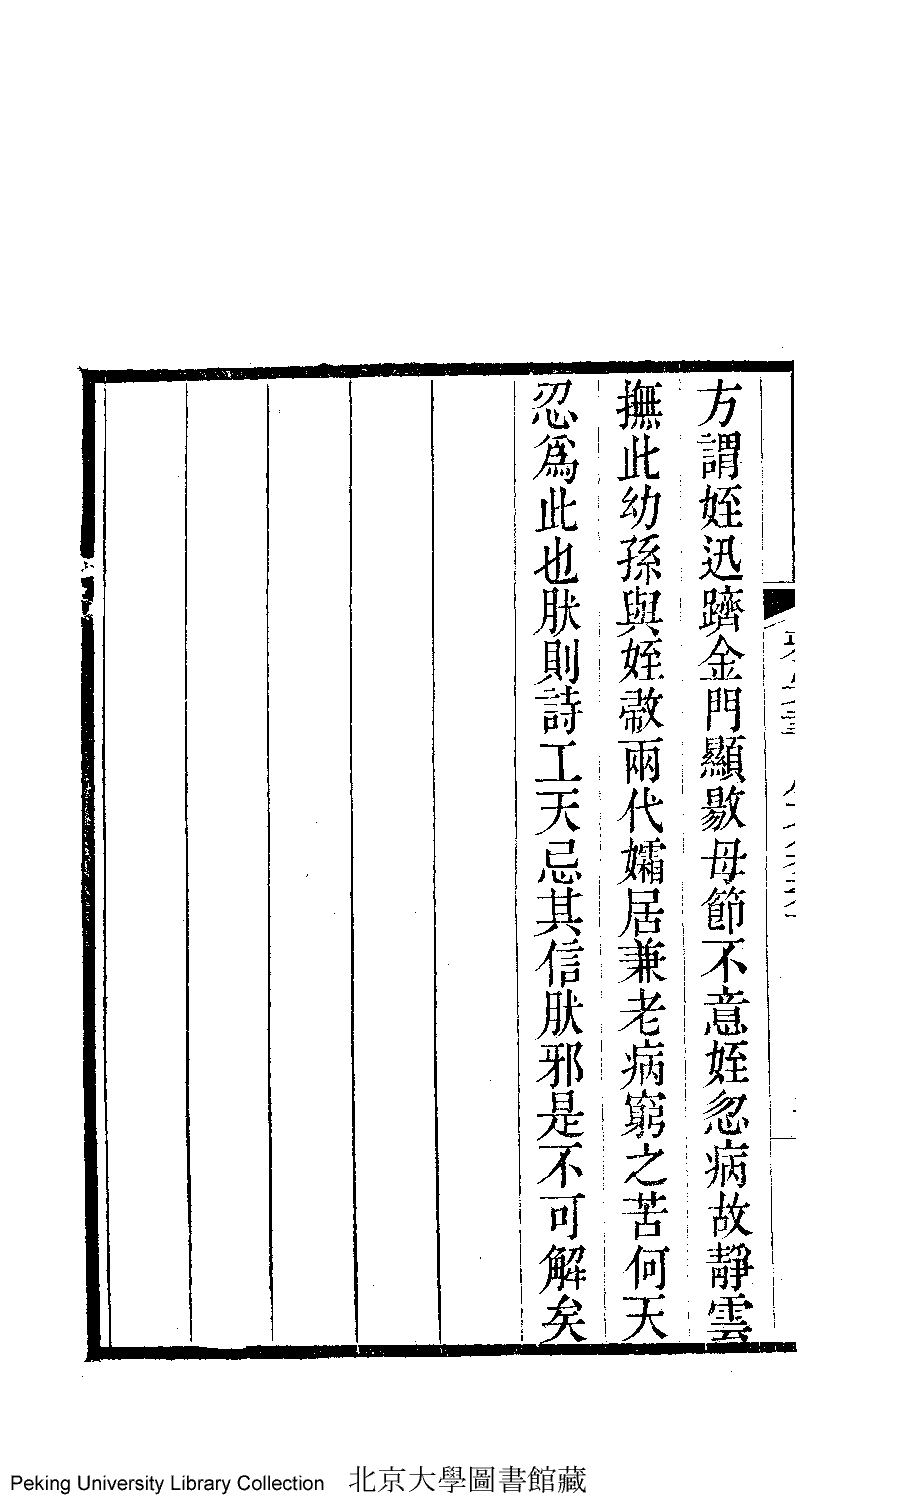 方謂姪迅躋金門顯敭母節不意姪忽病故靜雲
撫此幼孫與姪𡠉兩代孀居兼老病窮之苦何天
忍爲此也肰則詩工天忌其信肰邪是不可解矣
Peking University Library Collection 北京大學圖書館藏